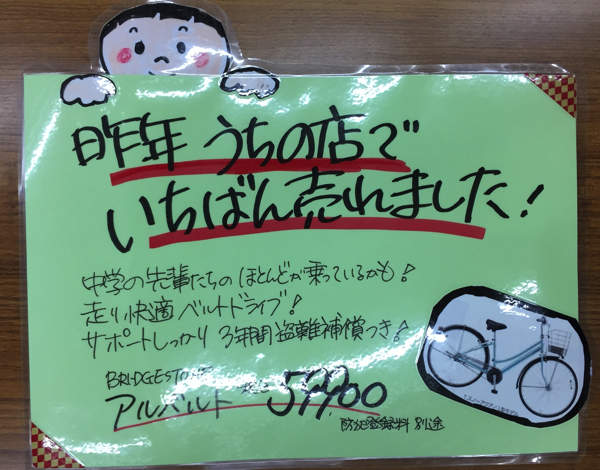 昨年 うちの店で
いちばん売れました!
中学の先輩たちの ほとんどが乗っているかも!
走り快適ベルトドライブ!
サポートしっかり 3年間盗難補償つき!
BRIDGESTONE
アルベルト
防犯登録料 別途